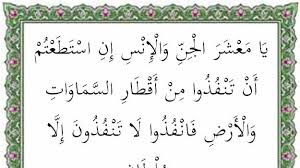 يَا مَعْشَرَ الْجِنِّ وَالْإِنْسِ إِنِ اسْتَطَعْتُمْ
أَنْ تَنْفُذُوا مِنْ أَقْطَارِ السَّمَاوَاتِ
وَالْأَرْضِ فَانْفُذُوا لَا تَنْفُذُونَ إِلَّا